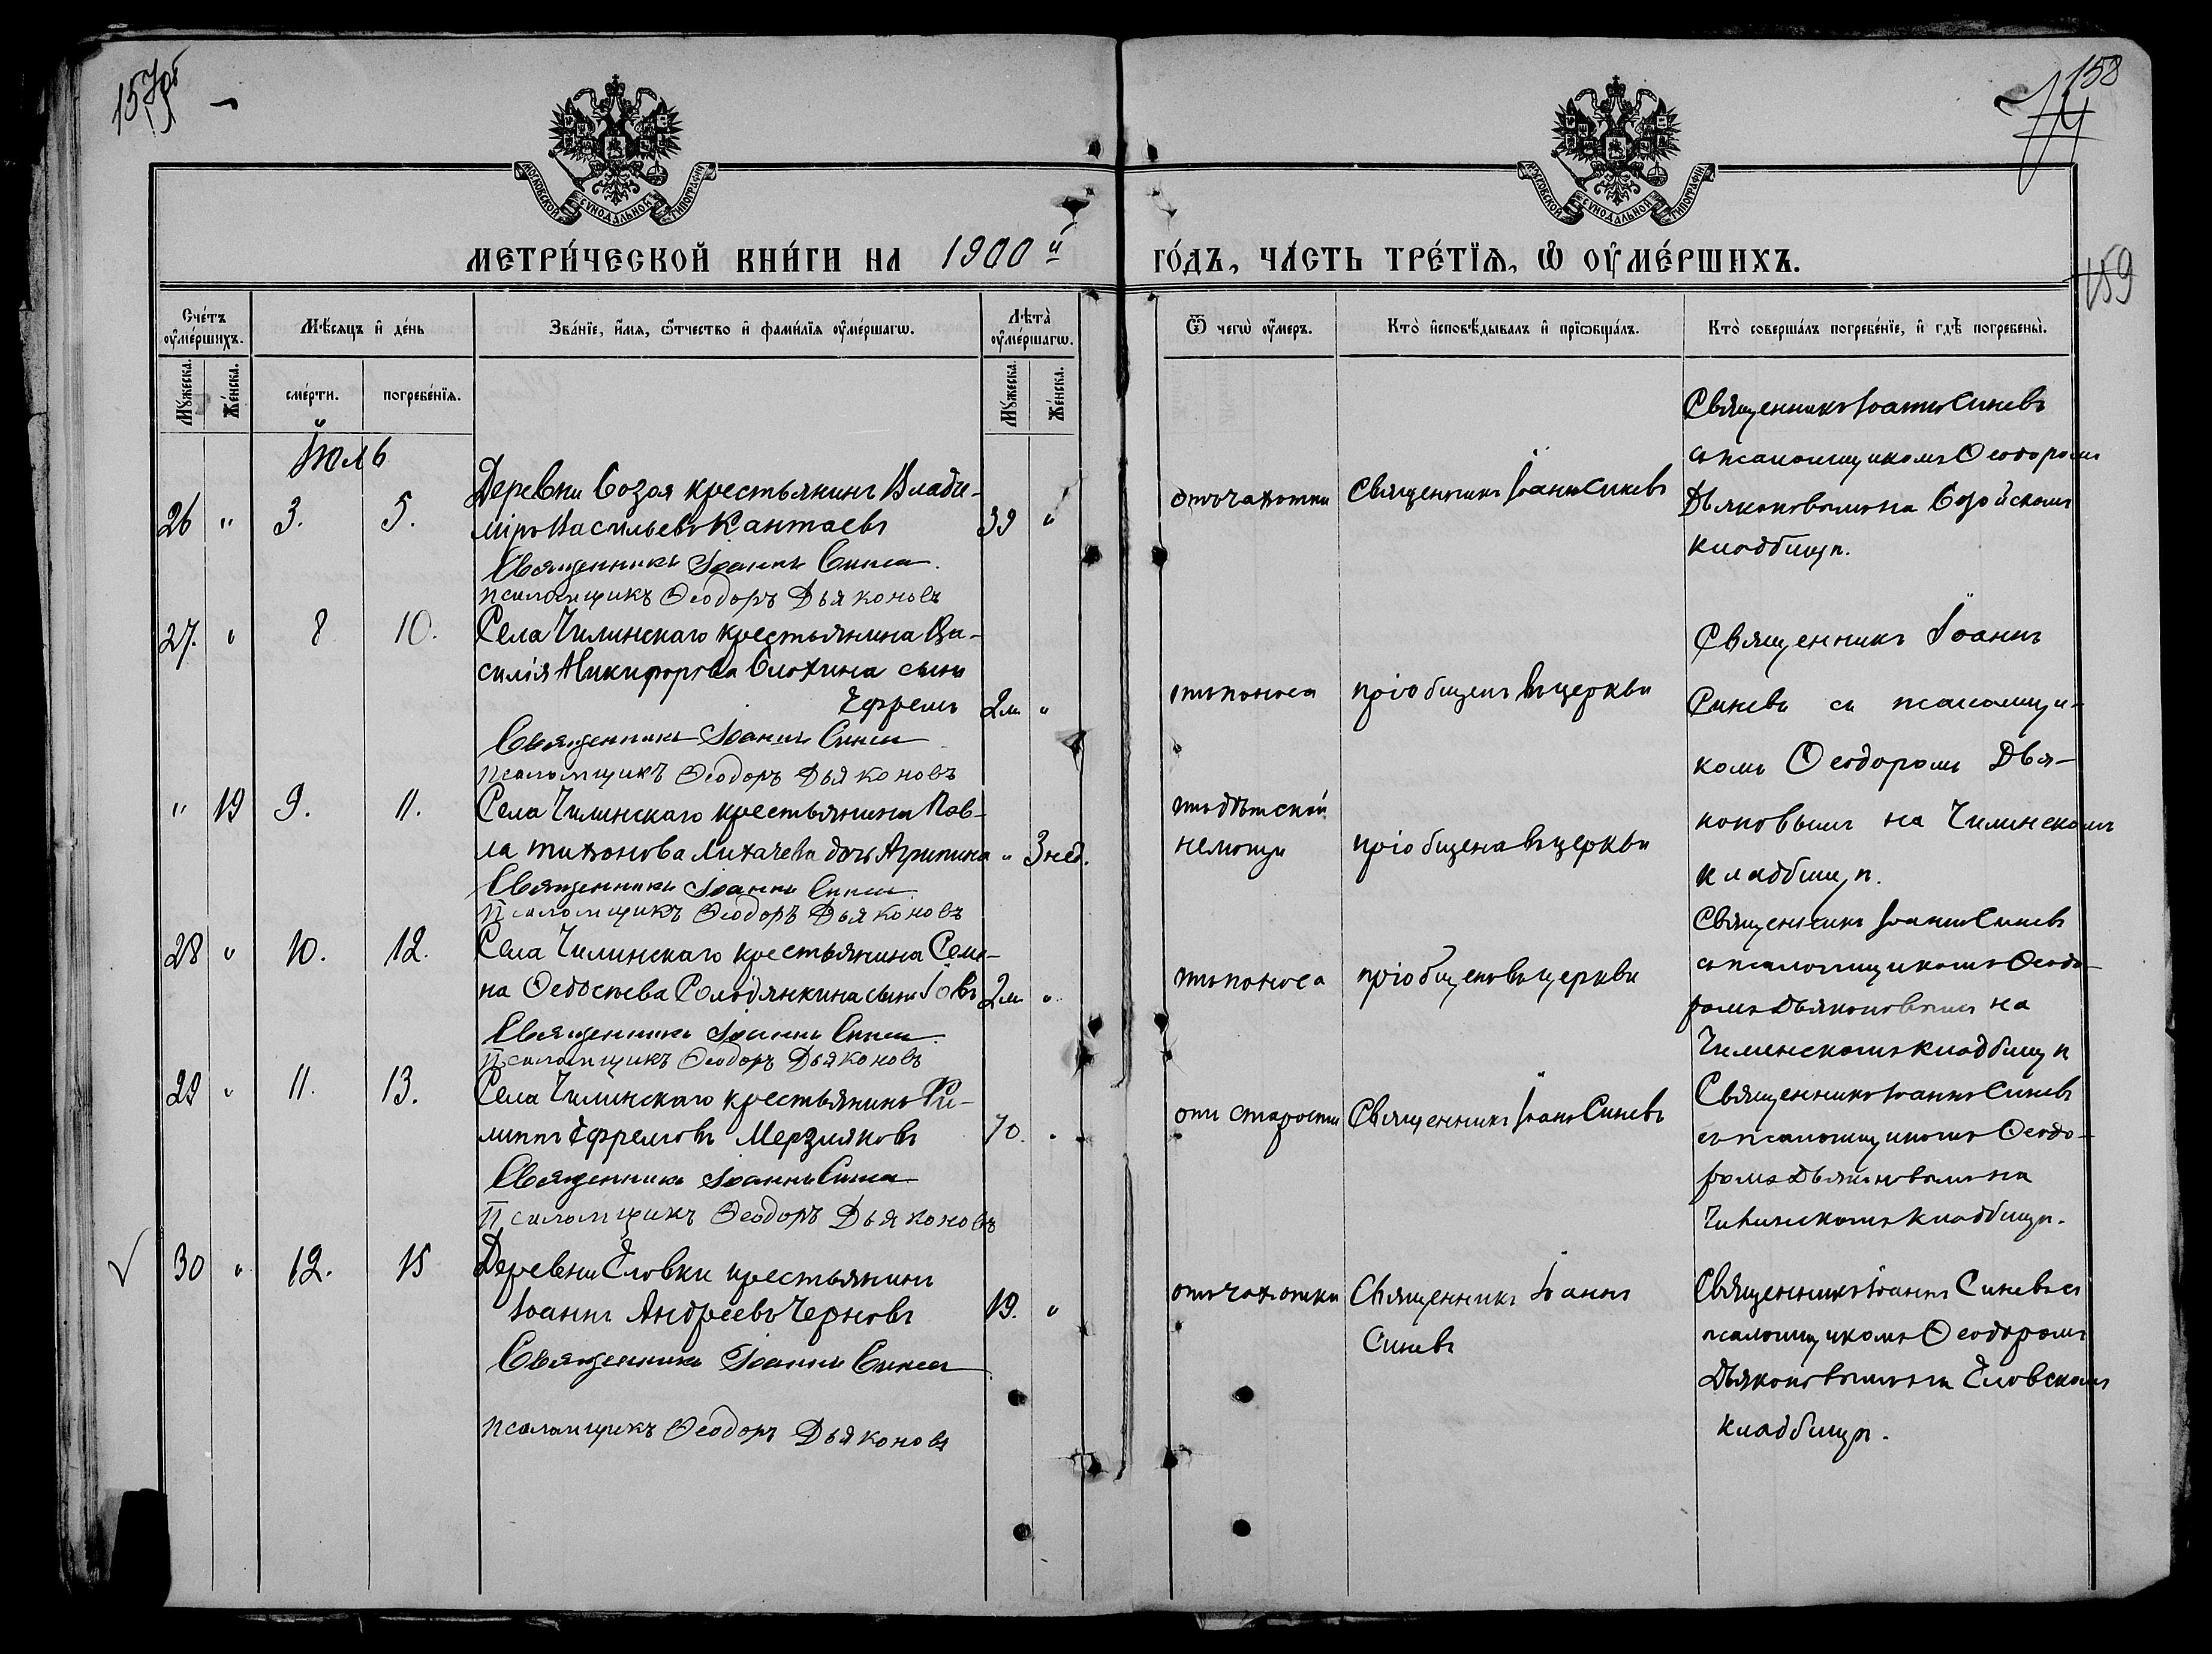 157об
158
74
159
МОСКОВСКОЙ СУНОДАЛЬНОЙ ТИПОГРАФІИ
МОСКОВСКОЙ СУНОДАЛЬНОЙ ТИПОГРАФІИ
МЕТРИ́ЧЕСКОЙ КНИ́ГИ НА 1900й ГО́ДЪ, ЧА́СТЬ ТРЕ́ТІѦ, Ѡ ОУМЕ́РШИХЪ.
Сче́тъ оуме́ршихъ.
Мѣ́сяцъ и де́нь
Зва́нїе, и́мя, ѿчество и фами́лїя оуме́ршагѡ.
Лѣта̀ оуме́ршагѡ.
Ѿ чегѡ̀ оу́меръ.
Кто̀ исповѣ́дывалъ и прїѡбща́лъ.
Кто̀ соверша́лъ погребе́нїе, и гдѣ̀ погребены̀.
Му́жеска.
Же́нска.
сме́рти.
погребе́нїя.
Му́жеска.
Же́нска.
Іюль
26 " 3. 5.
Деревни Созоя крестьянинъ Влади-
міръ Васильевъ Кантаевъ 39 "
Священникъ Іоаннъ Синев
Псаломщикъ Ѳеодоръ Дьяконовъ
отъ чахотки
Священникъ Іоаннъ Синевъ
Священникъ Іоаннъ Синевъ
съ псаломщикомъ Ѳеодоромъ
Дьяконовымъ на Созойскомъ
кладбищѣ.
27. " 8 10.
Села Чилинскаго крестьянина Ва-
силія Никифорова Блохина сынъ
Ефремъ 2 м "
Священникъ Іоаннъ Синев
Псаломщикъ Ѳеодоръ Дьяконовъ
отъ поноса
пріобщенъ въ церкви
Священникъ Іоаннъ
Синевъ съ псаломщи-
комъ Ѳеодоромъ Дья-
коновымъ на Чилинскомъ
кладбищѣ.
" 19 9. 11.
Села Чилинскаго крестьянина Пав-
ла Тихонова Лихачева дочь Агрипина " 3 нед.
Священникъ Іоаннъ Синев
Псаломщикъ Ѳеодоръ Дьяконовъ
отъ дѣтской
немощи
пріобщена въ церкви
28 " 10. 12.
Села Чилинскаго крестьянина Семе-
на Ѳедосѣева Солодянкина сынъ Іовъ 2 м "
Священникъ Іоаннъ Синев
Псаломщикъ Ѳеодоръ Дьяконовъ
отъ поноса
пріобщенъ въ церкви
Священникъ Іоаннъ Синевъ
съ псаломщикомъ Ѳеодо-
ромъ Дьяконовымъ на
Чилинскомъ кладбищѣ
29 " 11. 13.
Села Чилинскаго крестьянинъ Фи-
липпъ Ефремовъ Мерзляковъ 70. "
Священникъ Іоаннъ Синев
Псаломщикъ Ѳеодоръ Дьяконовъ
отъ старости
Священникъ Іоаннъ Синевъ
Священникъ Іоаннъ Синевъ
съ псаломщикомъ Ѳеодо-
ромъ Дьяконовымъ на
Чилинскомъ кладбищѣ.
30 " 12. 15
Деревни Еловки крестьянинъ
Іоаннъ Андреевъ Черновъ 19. "
Священникъ Іоаннъ Синев
Псаломщикъ Ѳеодоръ Дьяконовъ
отъ чахотки
Священникъ Іоаннъ
Синевъ
Священникъ Іоаннъ Синевъ съ
псаломщикомъ Ѳеодоромъ
Дьяконовымъ на Еловскомъ
кладбищѣ.